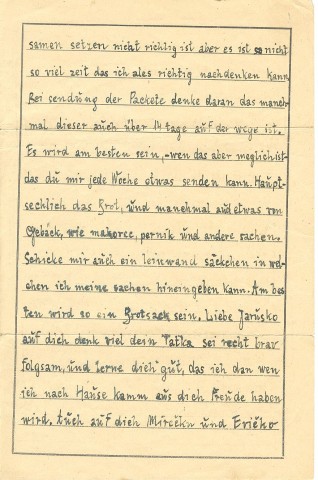 samen setzen nicht richtig ist aber es ist so nicht
so viel zeit das ich ales richtig nachdenken kann
Bei sendung der Packete denke daran das manch-
mal dieser auch über 14 tage auf der wege ist.
Es wird am besten sein, wen das aber meglich ist
das du mir jede Woche etwas senden kann. Haupt-
sechlich das Brot, und manchmal auch etwas von
Gebäck, wie makovec, pernik und andere sachen.
Schicke mir auch ein leinwand säckchen in wel-
chen ich meine sachen hineingeben kann. Am bes
ten wird so ein Brotsack sein. Liebe Jarusko
auf dich denk viel dein Tatka sei recht brav
folgsam, und lerne dich gut, das ich dan wen
ich nach Hause kamm aus dich freude haben
wird. Auch auf dich Mirečku und Eričko